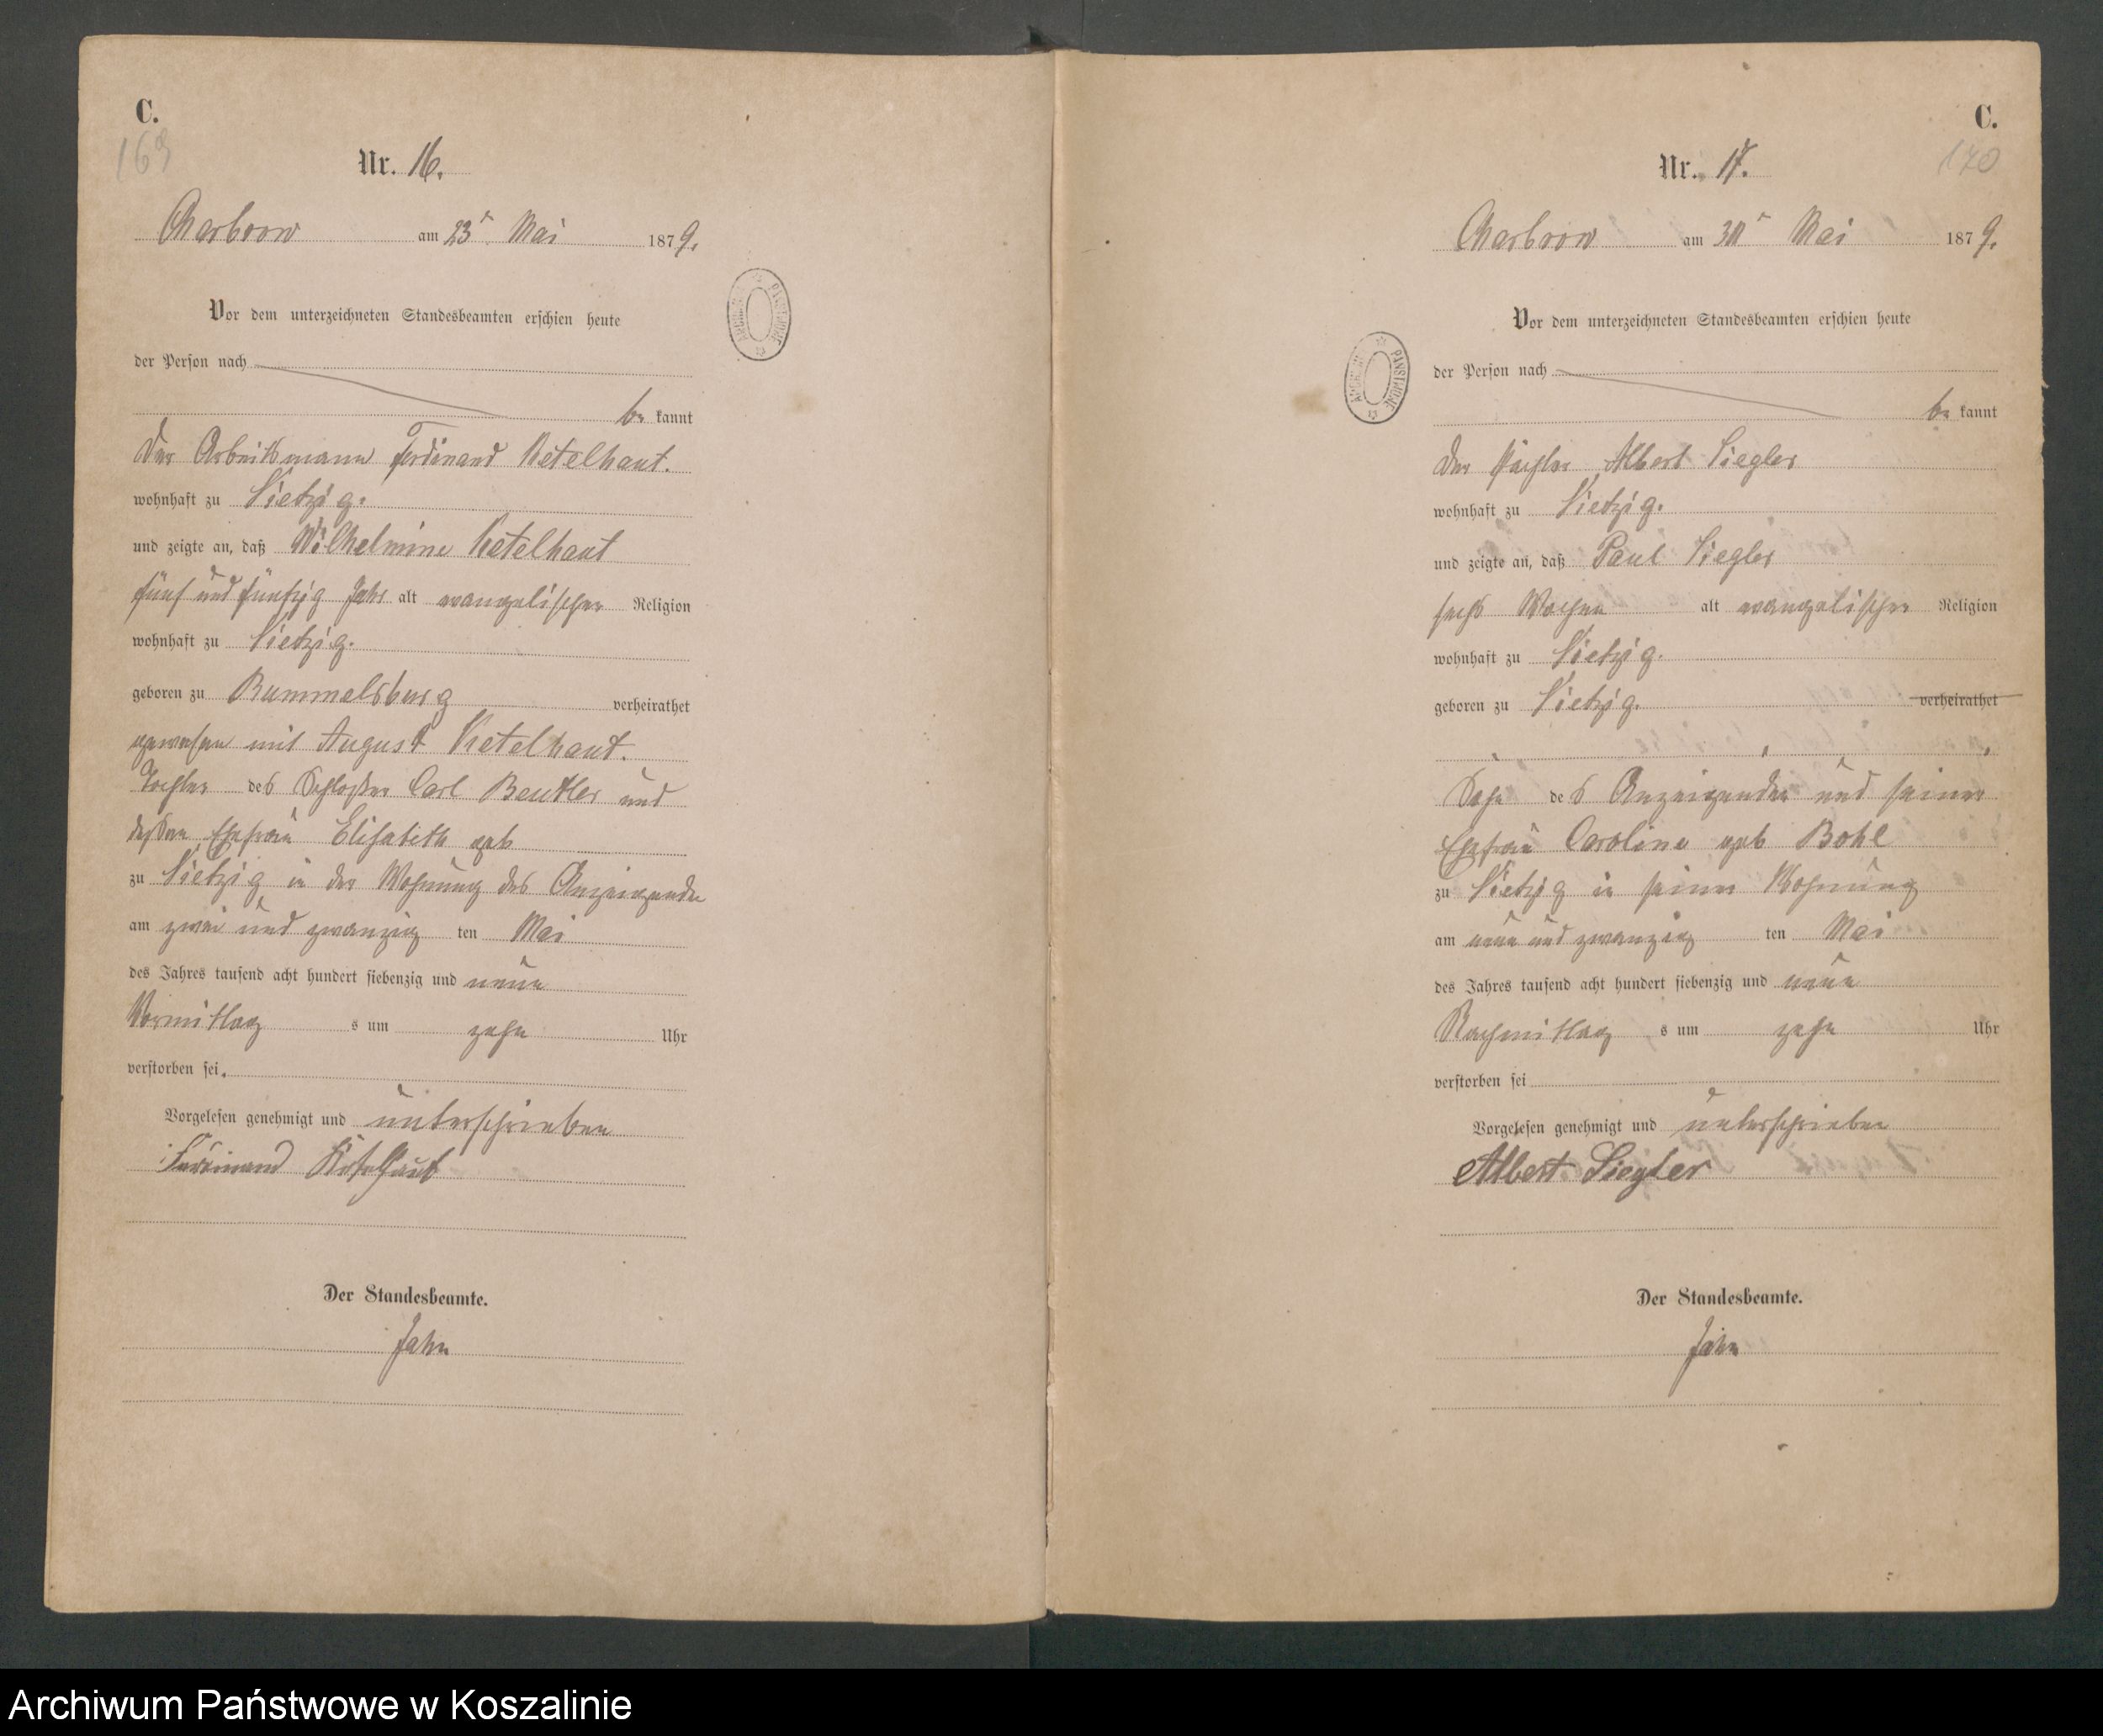 C.
169
Nr. 16.
Charbrow am 23t Mai 1879.
Vor dem unterzeichneten Standesbeamten erschien heute
der Person nach
be kannt
Der Arbeitsmann Ferdinand Ketelhaut.
wohnhaft zu Vietzig.
und zeigte an, daß Wilhelmine Ketelhaut
fünf und fünfzig Jahr alt evangelischer Religion
wohnhaft zu Vietzig.
geboren zu Rummelsburg verheirathet
gewesen mit August Ketelhaut.
Tochter des Schloßer Carl Beutler und
deßen Ehefrau Elisabeth geb
zu Vietzig in der Wohnung des Anzeigenden
am zwei und zwanzig ten Mai
des Jahres tausend acht hundert siebenzig und neun
Vormittag s um zehn Uhr
verstorben sei.
Vorgelesen genehmigt und unterschrieben
Ferdinand Ketelhaut
Der Standesbeamte.
Jahn
ARCHIWUM PAŃSTWOWE
C.
170
Nr. 17.
Charbrow am 30t Mai 1879.
Vor dem unterzeichneten Standesbeamten erschien heute
der Person nach
be kannt
Der Albert Siegler
wohnhaft zu Vietzig.
und zeigte an, daß Paul Siegler
sechs Wochen alt evangelischer Religion
wohnhaft zu Vietzig.
geboren zu Vietzig. verheirathet
Sohn des Anzeigenden und seiner
Ehefrau Caroline geb Bohl
zu Vietzig in seiner Wohnung
am neun und zwanzig ten Mai
des Jahres tausend acht hundert siebenzig und neun
Nachmittag s um zehn Uhr
verstorben sei
Vorgelesen genehmigt und unterschrieben
Albert Siegler
Der Standesbeamte.
Jahn
ARCHIWUM PAŃSTWOWE
Archiwum Państwowe w Koszalinie